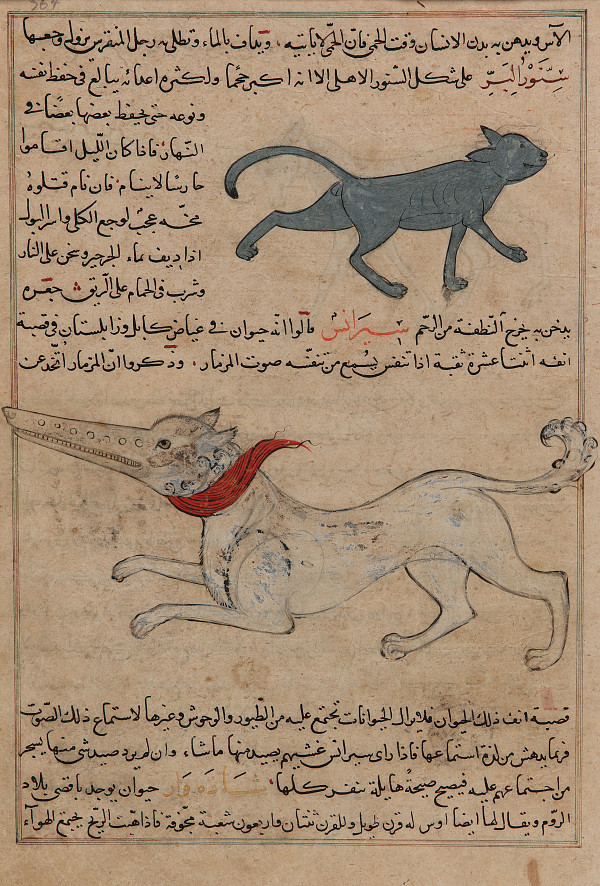 364
الآس ويدهن به بدن الانسان وقت الحمى فان الحمى لا ياتيه ويداف بالماء وتطلى به رجل المنقرس يزول وجعها
سنور البر على شكل السنور الاهلى الا انه اكبر حجما ولكثرة اعدائه يبالغ فى حفظ نفسه
ونوعه حتى يحفظ بعضها بعضا فى
النهار فاذا كان الليل اقاموا
حارسا لا ينام فان نام قتلوه
مخه عجيب لوجع الكلى واسر البول
اذا ديف بماء الجرجير وسخن على النار
وشرب فى الحمام على الريق جعره
يدخن به يخرج النطفة من الرحم سيرانس قالوا انه حيوان فى غياض كابل وزابلستان فى قصبة
انفه اثنتا عشرة ثقبة اذا تنفس يسمع من تنفسه صوت المزمار وذكروا ان المزمار اتخذ عن
قصبة انف ذلك الحيوان فلا يزال الحيوانات تجتمع عليه من الطيور والوحوش وغيرها لاستماع ذلك الصوت
فربما يدهش من لذة استماعها فاذا راى سيرانس غشيهم يصيد منها ما شاء وان لم يرد صيد شى منها يضجر
من اجتماعهم عليه فيصيح صيحة هايلة تنفر كلها شاده وار حيوان يوجد باقصى بلاد
الروم ويقال لها ايضا اوس له قرن طويل وللقرن ثنتان واربعون شعبة مجوفة فاذا هبت الريح يجتمع الهوآء